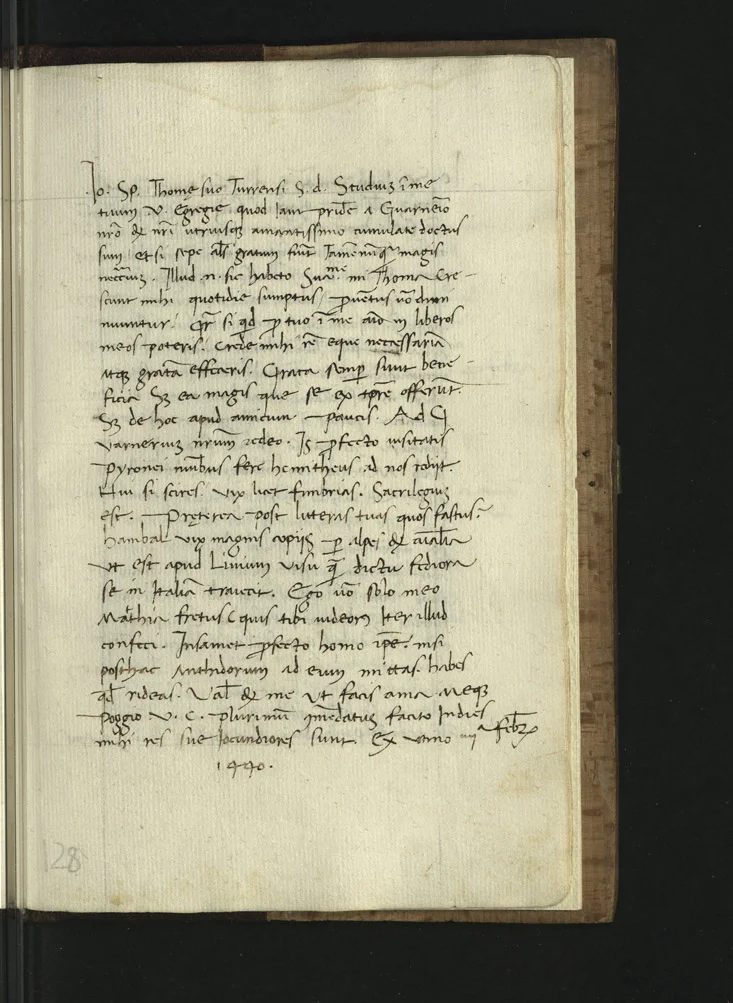 Jo. Sp. Thomę suo Turrensi S. d. Studiuz ī me
tuum .V. Egregie quod Iam pridē a Guarnerio
nrō & nrī utriusqz amantissimo cumulate doctus
sum et si sepe als̄ gratum fuit Tamē nūq̄ magis
neccriuz. Illud .n. sic habeto Suaue. mi Thoma Cre-
scunt mihi quotidie sumptus / ꝓuētus uō dimi
nuuntur. Qr̄ si qd ꝓ tuo ī me aīo in liberos
meos poteris. Crede mihi rē eque necessariā
atqz gratā effeceris. Grata semp sunt bene-
ficia Sz ea magis que se ex tpre offerūt.
Sz de hoc apud amicum paucis. Ad G
varneriuz nrum redeo. Is ꝓfecto uisitatis
Pyronei niuibus fere hemitheus ad nos rediit.
Hui si scires. vix licet fimbrias. Sacrilegiuz
est. Pręterea post litteras tuas quos fastus?
hambal vix magnis copijs ꝑ alpes &
vt est apud Liuium visu q̄ dictu fędiora
se in Italiā traiecit. Ego uō solo meo
Mathia fretus (quis tibi uideor) Iter illud
confeci. Insaniet ꝓfecto homo ipē. nisi
posthac Anthidorum ad eum mittas. habes
qd rideas. Val & me vt facis ama Meqz
Poggio V. C. plurimū ꝯmēdatuz facito Indies
mihi res sue Iocundiores sunt. Ex vtino iiij febr
1440.
28